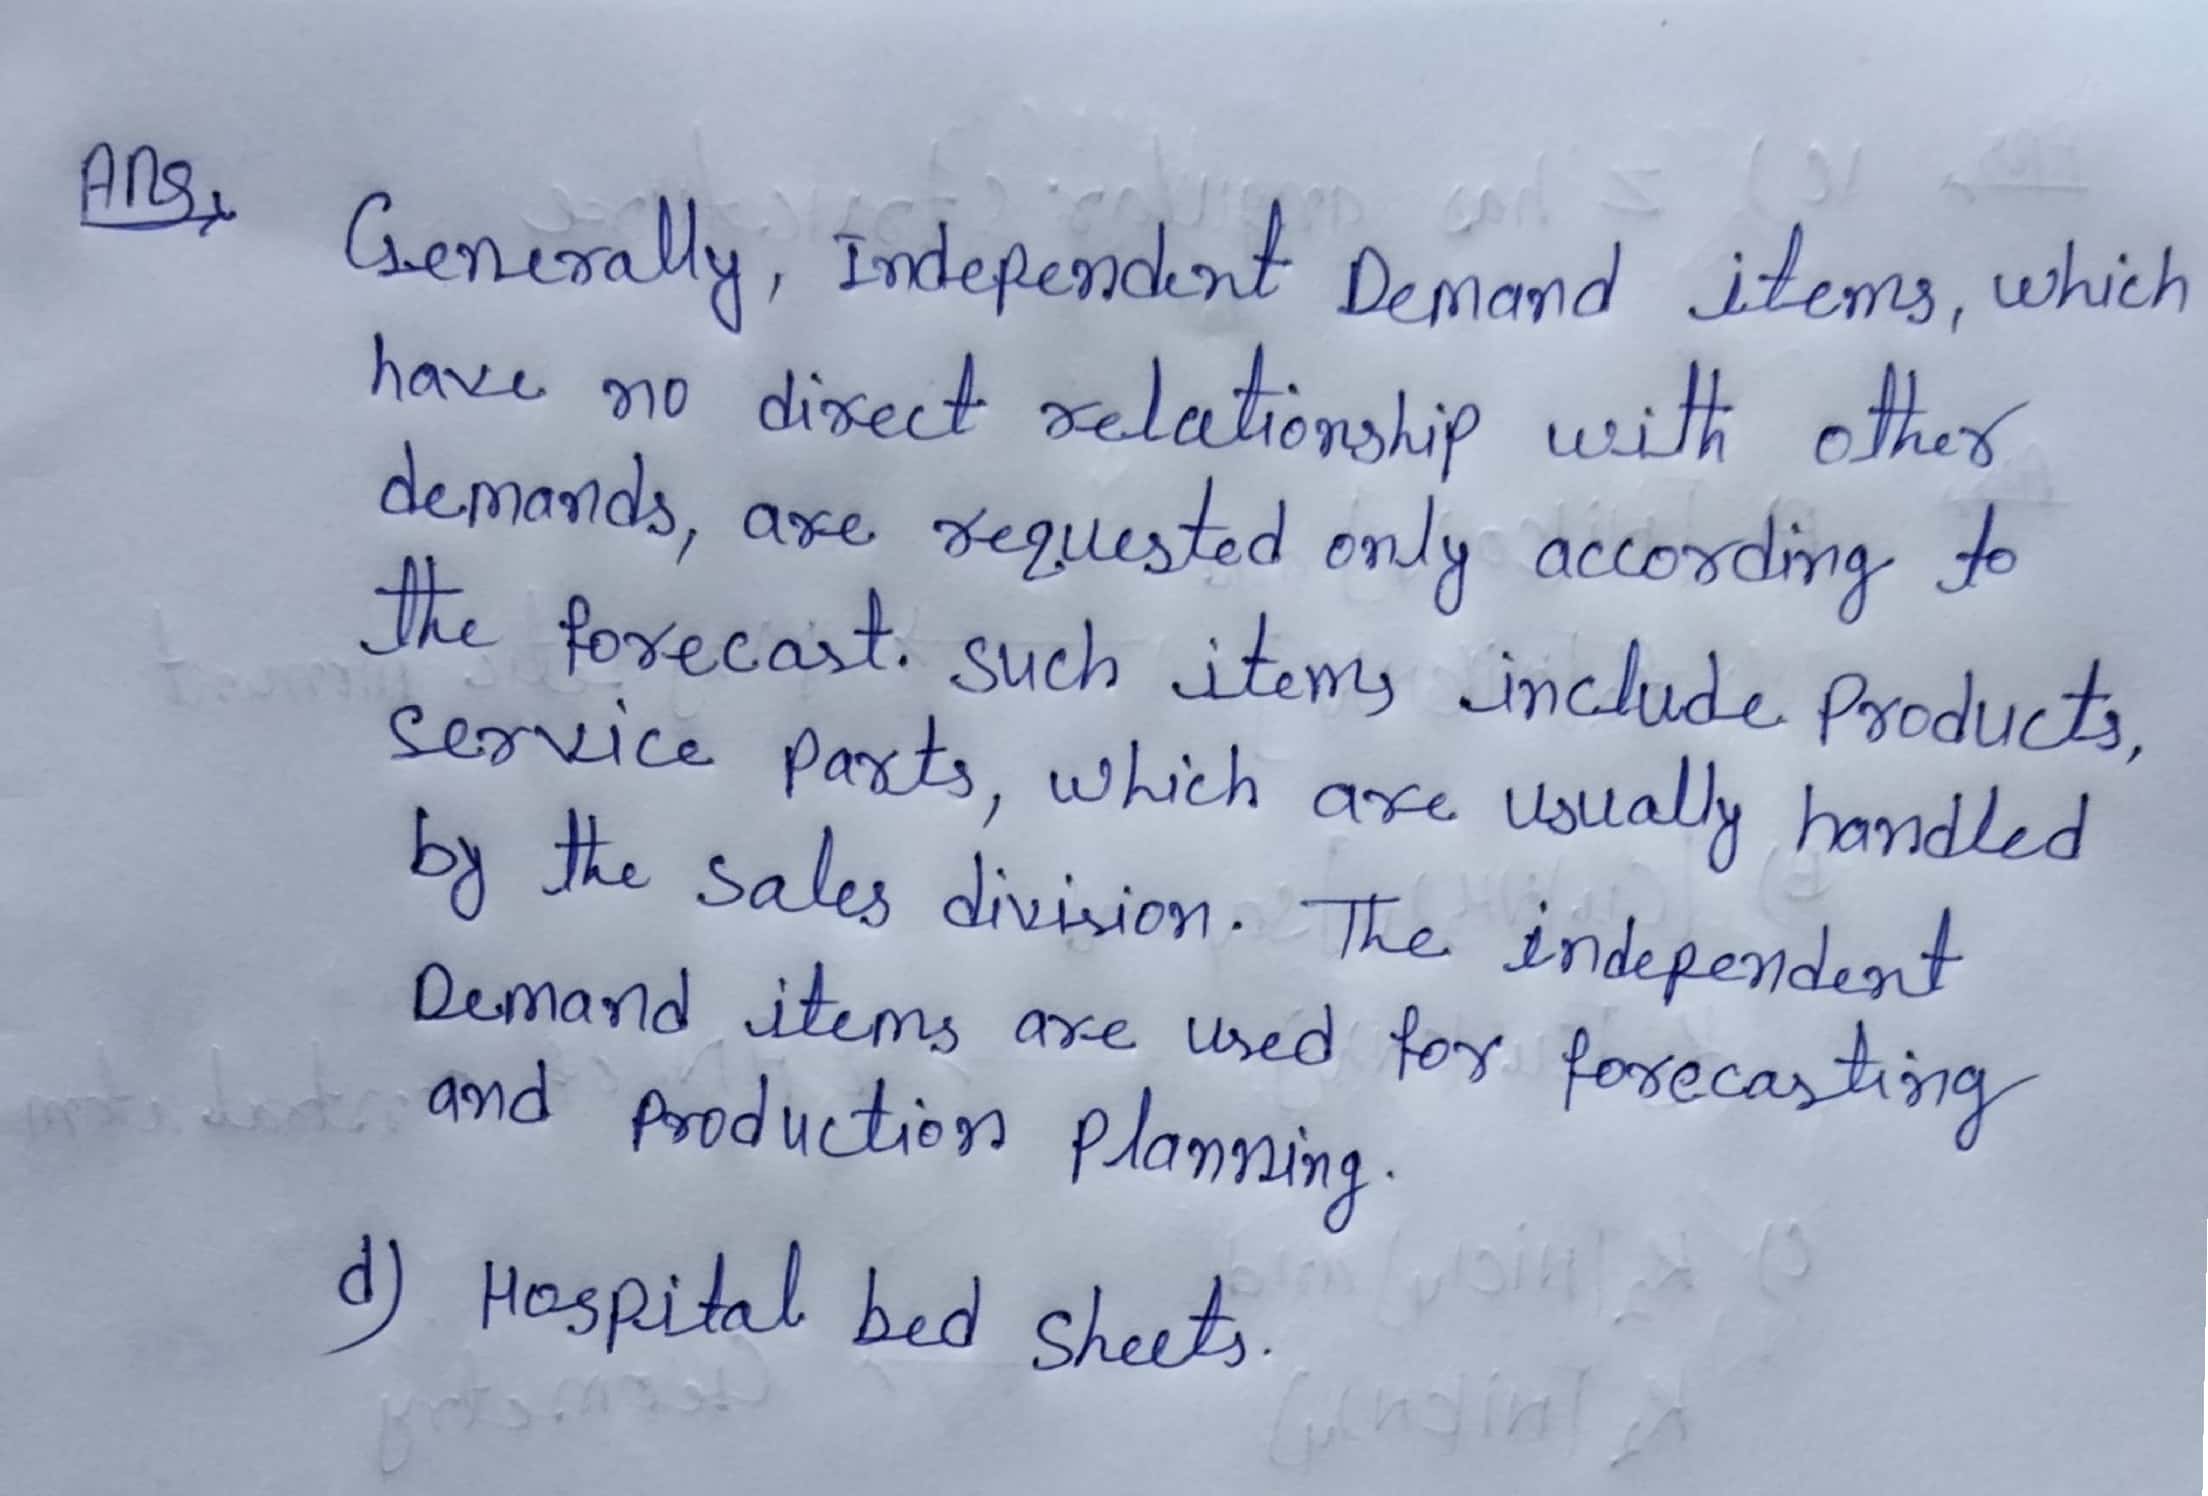 Ans,
Generally, Independent Demand items, which
have no direct relationship with other
demands, are requested only according to
the forecast. Such items include Products,
service parts, which are usually handled
by the sales division. The independent
Demand items are used for forecasting
and Production Planning.
d) Hospital bed sheets.